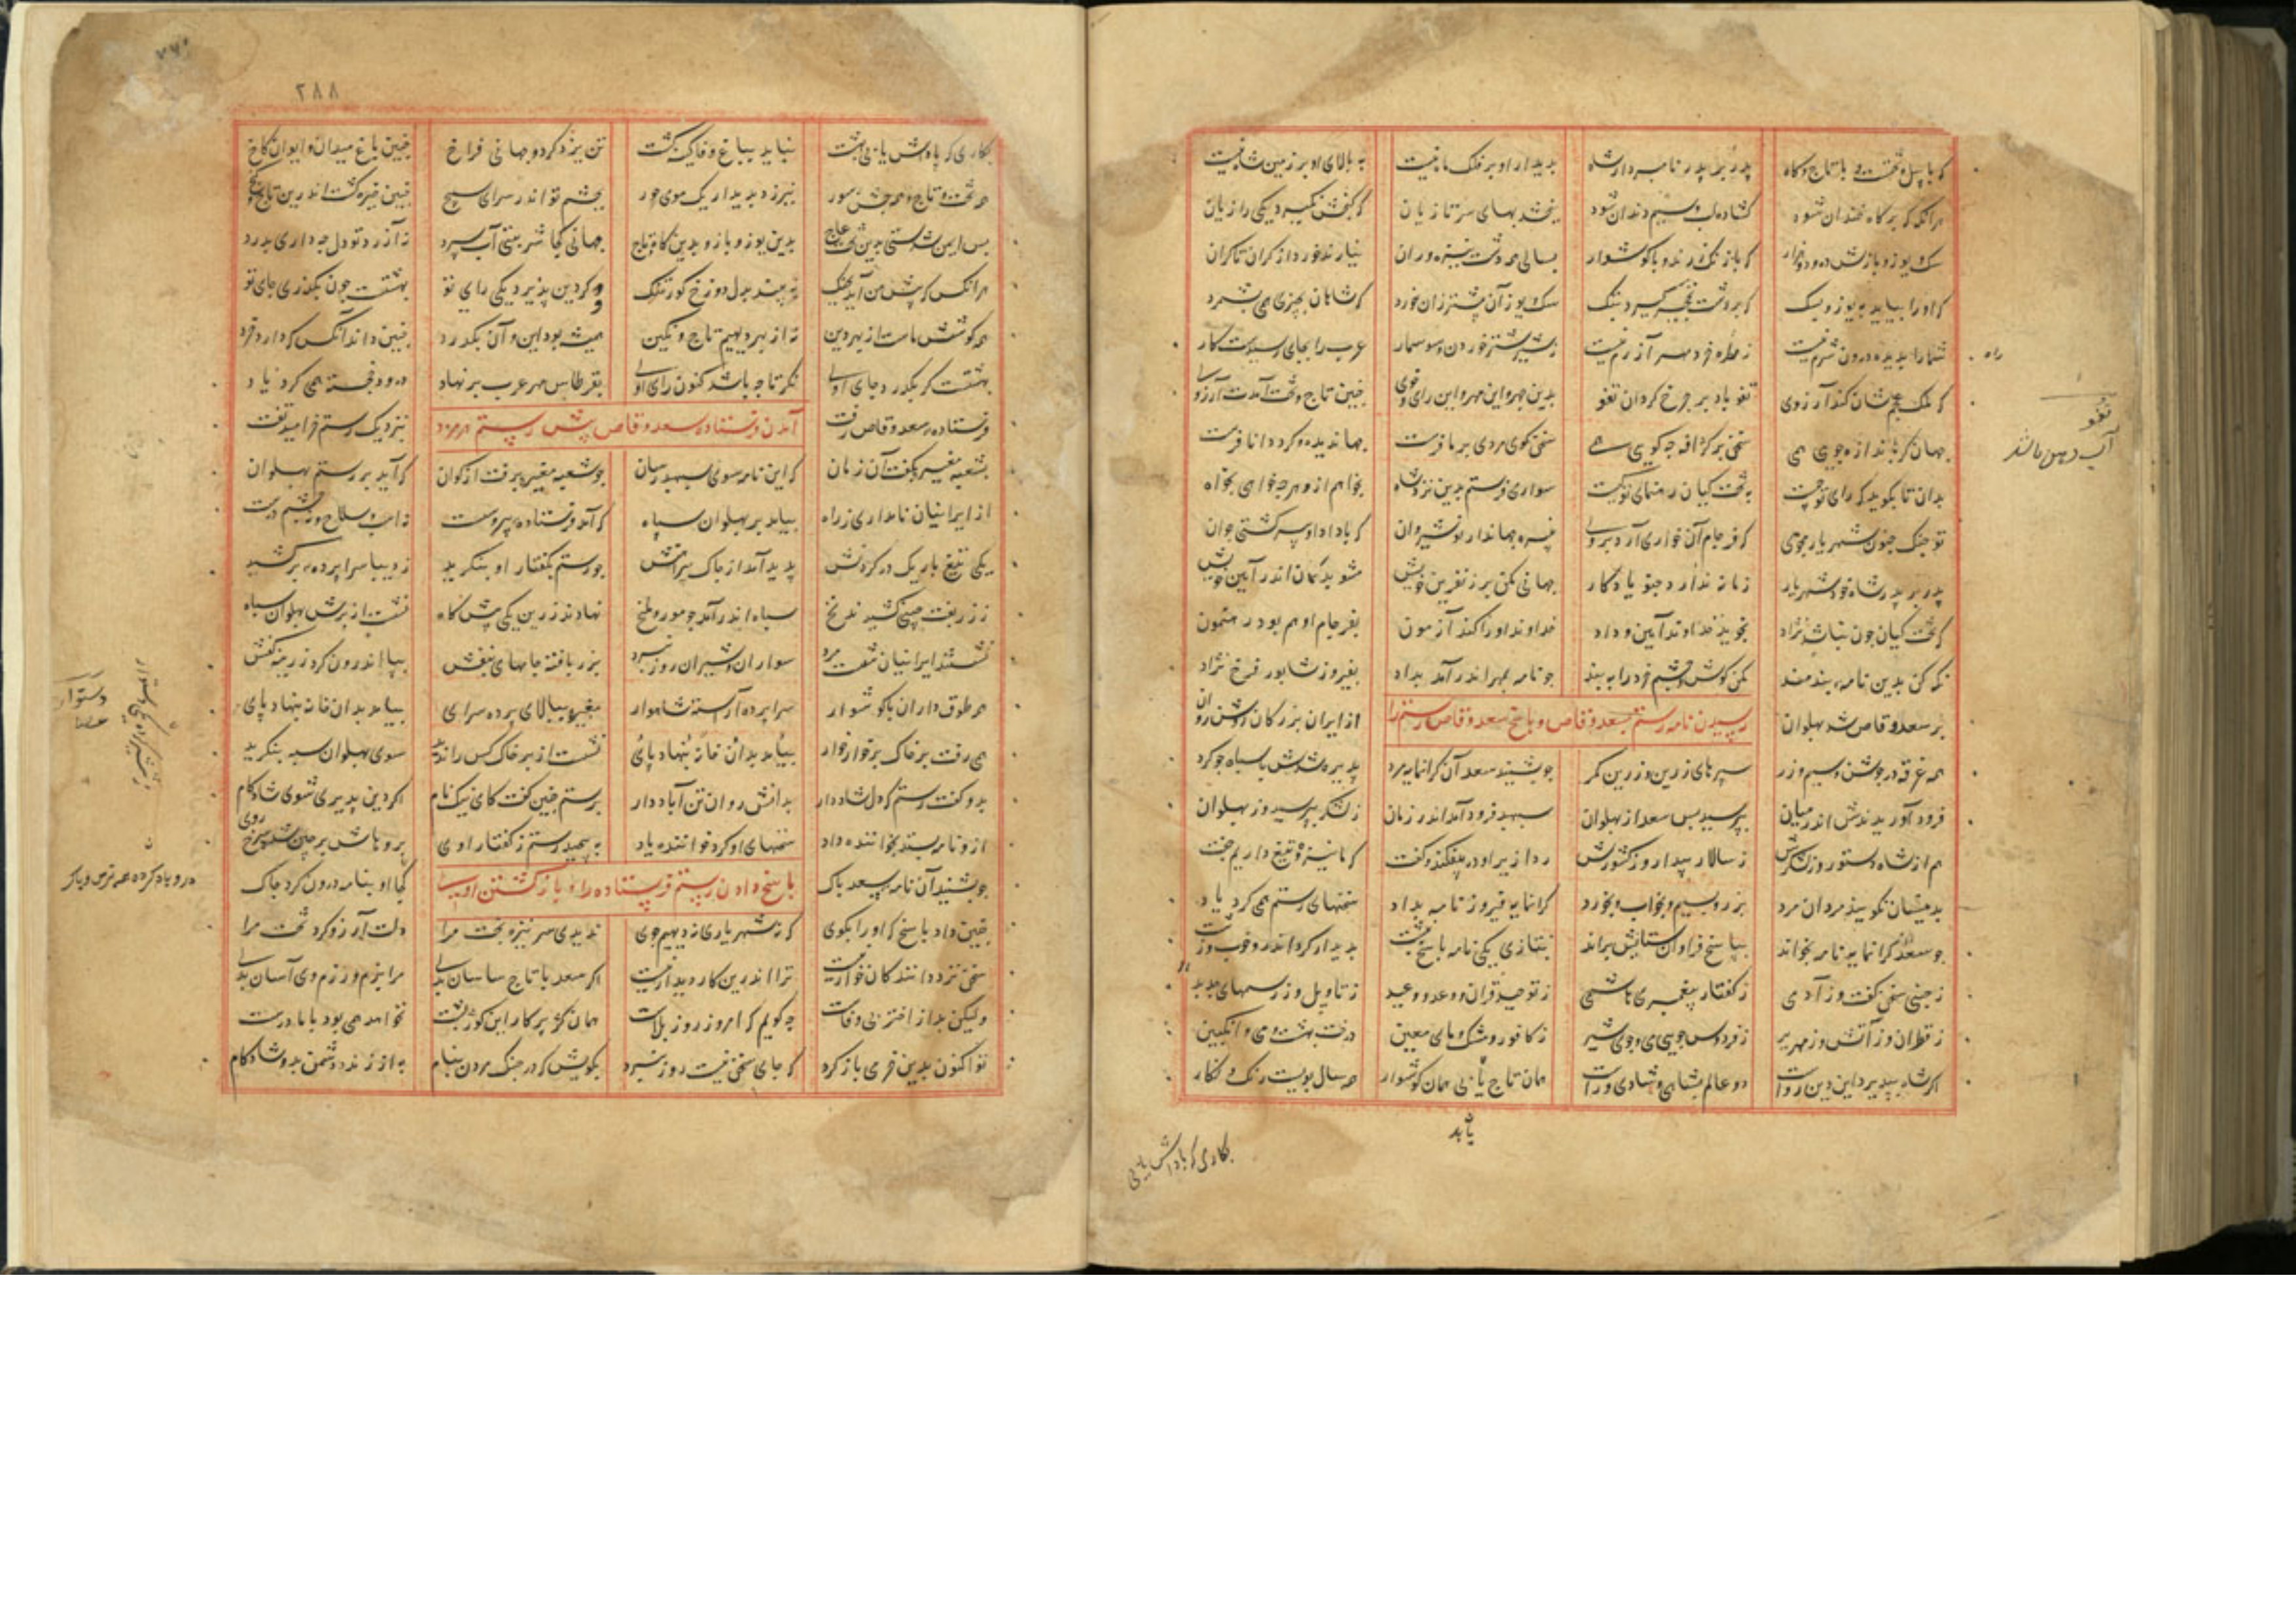 که با پیل و تخت و با تاج و گاه پدر بر پدر نامبردار شاه بدیدار او بر فلک ماه نیست به بالای او بر زمین شاه نیست
هر آنگه که بر گاه خندان شود گشاده لب و سیم دندان شود ببخشد بهای سر تازیان که گنجش نگیرد یکی را زیان
سگ و یوز و بازش ده و دو هزار که با زنگ زرند و با گوشوار بسالی همه دشت نیزه وران نیارند خورد از کران تا کران
که او را بباید به یوز و بسگ که بر دشت نخجیر گیرد بتگ سگ و یوز آن بیشتر زان خورد که شاهان بچیزی همی شمرد
شما را بدیده درون شرم نیست ز راه خرد مهر آزرم نیست ز شیر شتر خوردن و سوسمار عرب را بجای رسیدست کار
که ملک عجم شان کند آرزوی تفو باد بر چرخ گردان تفو بدین چهر و این مهر و این رای و خوی چنین تاج و تخت آمدت آرزوی
جهان گر باندازه جویی همی سخن بر گزافه چه گویی همی سخن گوی مردی بر ما فرست جهاندیده و گرد و دانا فرست
بدان تا بگوید که رای تو چیست به تخت کیان رهنمای تو کیست سواری فرستم بدین نزد شاه بخواهم ازو هر چه خواهی بخواه
تو جنگ چنون شهریار مجوی که فرجام آن خواری آرد بروی نبیره جهاندار نوشیروان که با داد او پیر گشتی جوان
پدر بر پدر شاه و خود شهریار زمانه ندارد چنو یادگار جهانی مکن بر ز نفرین خویش مشو بدگمان اندر آیین خویش
که تخت کیان چون نباشد نژاد نجوید خداوند آیین و داد خداوند او را کند آزمون بفرجام او هم بود رهنمون
نگه کن بدین نامه پندمند مکن گوش و چشم خرد را ببند چو نامه بمهر اندر آمد بداد بفیروز شاپور فرخ نژاد
رسیدن نامه رستم بسعد وقاص و پاسخ سعد وقاص رستم را
بر سعد وقاص شد پهلوان از ایران بزرگان روشن روان
همه غرقه در جوشن و سیم و زر سپرهای زرین و زرین کمر چو بشنید سعد آن گرانمایه مرد پذیره شدش با سپاه چو گرد
فرود آوریدندش اندر میان بپرسید پس سعد از پهلوان سپهبد فرود آمد اندر زمان ز لشکر بپرسید وز پهلوان
هم از شاه و دستور وز لشکرش ز سالار بیدار وز کشورش ردا زیر او در بیفکند و گفت که ما نیزه و تیغ داریم جفت
بدیشان نگویند مردان مرد بزر و بسیم و بخواب و بخورد گرانمایه فیروز نامه بداد سخنهای رستم همی کرد یاد
چو سعد گرانمایه نامه بخواند بپاسخ فراوان ستایش براند بتازی یکی نامه پاسخ نبشت پدیدار کرد اندر و خوب و زشت
ز جنی سخن گفت وز آدمی ز گفتار پیغمبر هاشمی ز توحید قران و وعد و وعید ز تاویل وز رسمهای جدید
ز قطران وز آتش وز مهریر ز فردوس و جوی می و جوی شیر ز کافور و مشک و مای معین درخت بهشت و می و انگبین
اگر شاه بپذیرد این دین راست دو عالم بشاهی و شادی وراست همان تاج یابی همان گوشوار همه سال بویست و رنگ و نگار
یابد
بکاری که پاداش یابی
راه
تفو
۲۸۸
بکاری که پاداش یابی بهشت نباید بباغ وفا کینه کشت تن یزدگرد و جهانی فراخ چنین باغ و میدان و ایوان کاخ
همه تخت و تاج و همه جشن و سور نیرزد بدیدار یک موی حور بچشم تو اندر سرای سپنج چنین خیره گشت اندرین تاج و گنج
بس ایمن شدستی بدین تخت عاج بدین یوز و باز و بدین گاه و تاج جهانی کجا شربتی آب سرد نیرزد تو دل چه داری بدرد
هر آنکس که پیش من آید بجنگ نبیند بدل دوزخ گور تنگ و گر دین پذیرد یکی رای تو بهشتست چون بگذری جای تو
همه کوشش ماست از بهر دین نه از بهر دیهیم و تاج و نگین همیشه بود این و آن بگذرد چنین داند آنکس که دارد خرد
بهشتست گر بگذرد جای اوی نگر تا چه باشد کنون رای اوی بقرطاس مهر عرب بر نهاد درود خجسته همی کرد یاد
آمدن فرستاده سعد وقاص پیش رستم هرمزد
فرستاده سعد وقاص رفت بنزدیک رستم خرامید تفت
بشعبه مغیره بگفت آن زمان که این نامه سوی سپهبد رسان چو شعبه مغیره برفت از گوان که آید بر رستم پهلوان
از ایرانیان نامداری ز راه بیامد بر پهلوان سپاه که آمد فرستاده پیر و سست نه اسب و سلاح و نه چشم درست
یکی تیغ باریک در گردنش پدید آمد از چاک پیراهنش چو رستم بگفتار او بنگرید ز دیبا سراپرده برکشید
ز زربفت چینی کشیدند نخ سپاه اندر آمد چو مور و ملخ نهادند زرین یکی پیش گاه نشست از برش پهلوان سپاه
نشستند ایرانیان شست مرد سواران و شیران روز نبرد بزر بافته جامهای بنفش بپا اندرون کرده زرینه کفش
همه طوق داران با گوشوار سراپرده آراسته شاهوار مغیره ببالای پرده سرای بیامد بدان خانه بنهاد پای
همی رفت بر خاک بر خوار خوار بیامد بدان خانه بنهاد پای نشست از بر خاک کس را ندید سوی پهلوان سپه بنگرید
بدو گفت رستم که دل شاد دار بدانش روان تن آباد دار برستم چنین گفت کای نیک نام اگر دین پذیری شوی شادکام
ازو نامه بستد بخواننده داد سخنهای او کرد خواننده یاد بپیچید رستم ز گفتار اوی بروهاش بر چین شد و سرخ روی
پاسخ دادن رستم فرستاده را و باز گشتن او
چو بشنید آن نامه سعد پاک کجا او بنامه درون کرد چاک
چنین داد پاسخ که او را بگوی که نه شهریاری نه دیهیم جوی ندیدی سر نیزه بخت مرا دلت آرزو کرد تخت مرا
سخن نزد دانندگان خوار نیست ترا اندرین کار دیدار نیست اگر سعد با تاج ساسان بدی مرا بزم و رزم وی آسان بدی
ولیکن بد از اختر بی وفاست چه گویم که امروز روز بلاست همان کژ پرگار این گوژ پشت نخواهد همی بود با ما درست
تو اکنون بدین خرمی باز گرد که جای سخن نیست روز نبرد بگویش که در جنگ مردن بنام به از زنده دشمن بدو شادکام
دستوار
عصا